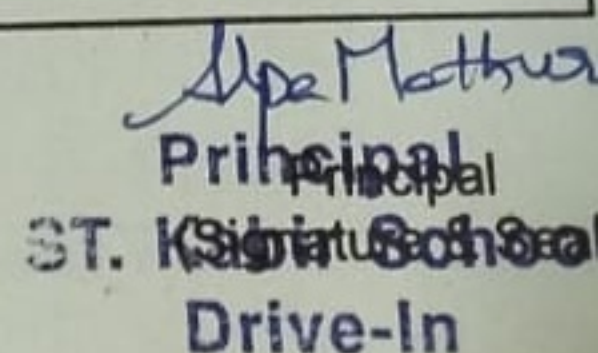 Alpa Mathur
Principal
Principal
ST. Kabir School
(Signature & Seal
Drive-In